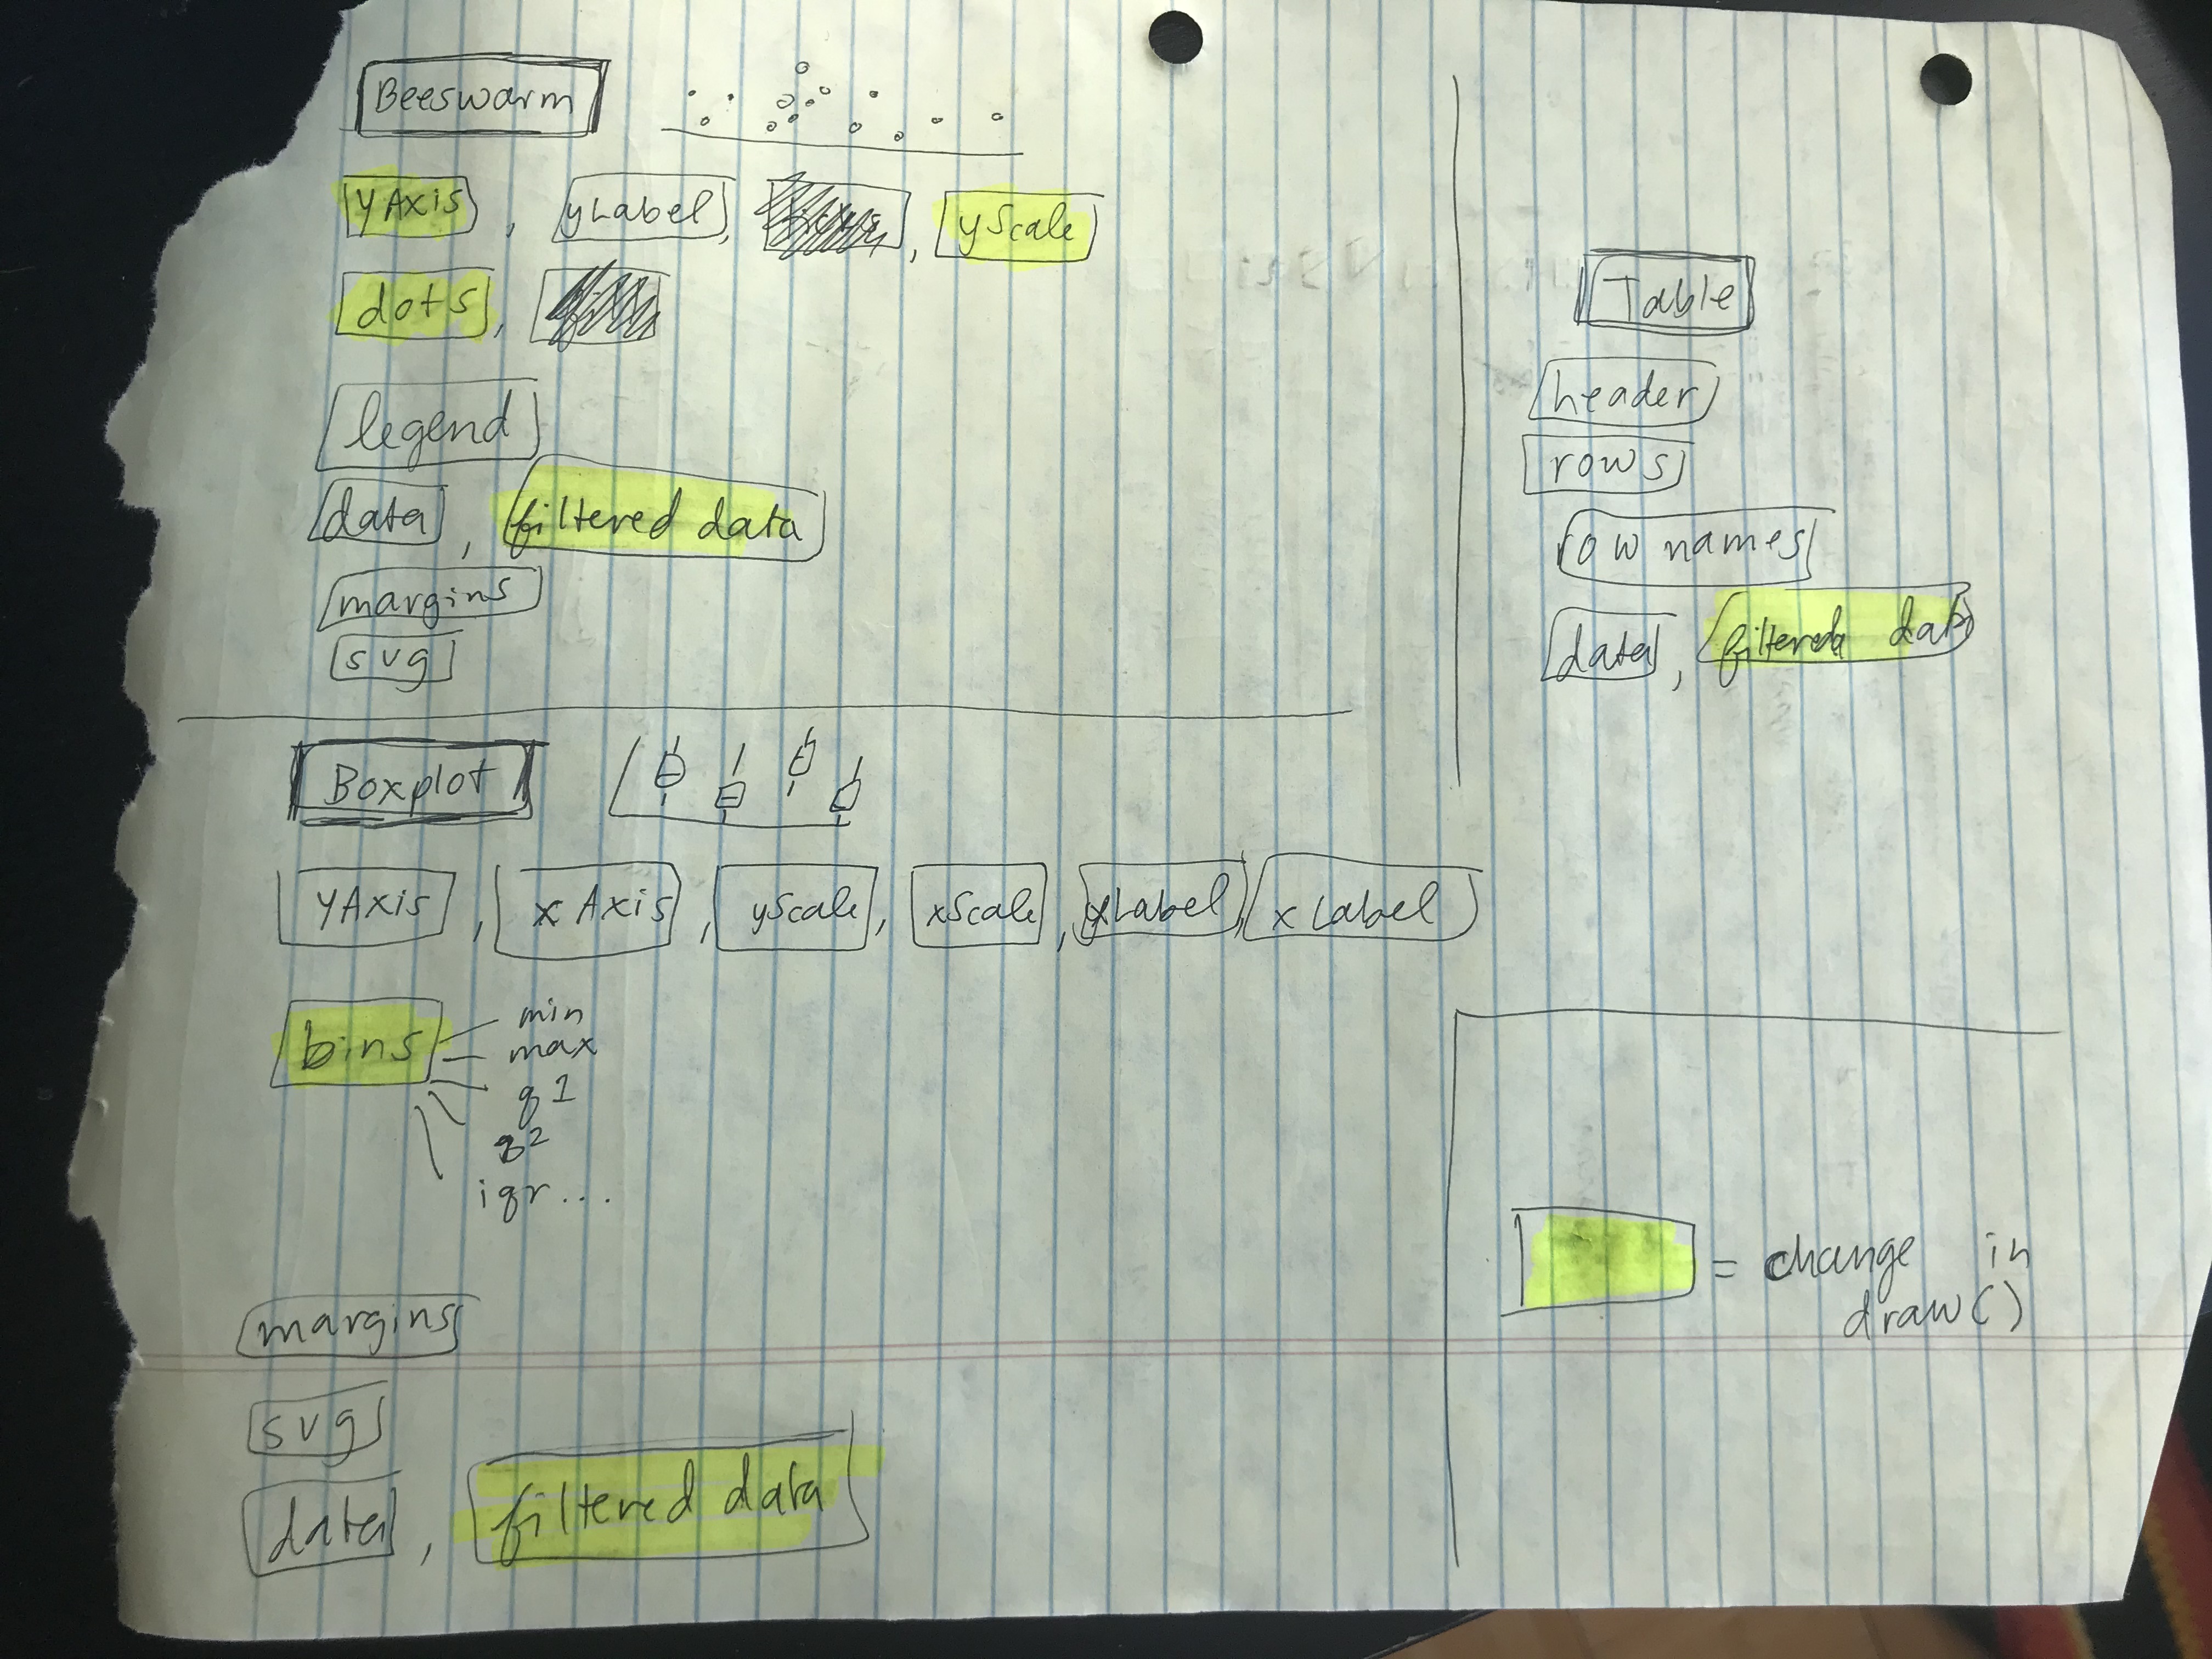 Beeswarm
YAxis, yLabel, yScale
dots,
legend
data, filtered data
margins
svg
Boxplot
YAxis, xAxis, yScale, xScale, yLabel, xLabel
bins
min
max
q1
q2
iqr...
margins
svg
data, filtered data
Table
header
rows
row names
data,
= change in
draw()